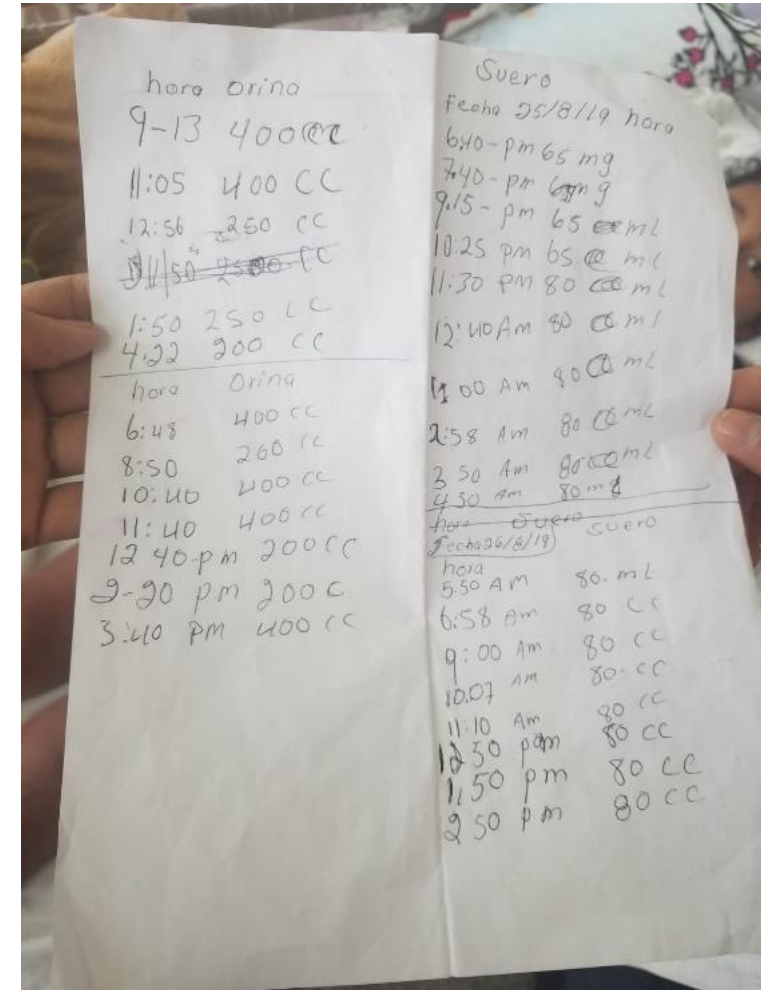 hora orina
9-13 400 cc
11:05 400 CC
12:56 250 CC
1:50 250 CC
4:22 200 CC
hora Orina
6:48 400 CC
8:50 260 CC
10:40 400 CC
11:40 400 CC
12 40-pm 200 CC
2-20 pm 200 C
3:40 pm 400 CC
Suero
Fecha 25/8/19 hora
6:40-pm 65 mg
7:40-pm mg
9:15-pm 65 mL
10:25 pm 65 mL
11:30 pm 80 mL
12:40 Am 80 ml
00 Am 80 mL
2:58 Am 80 mL
3 50 Am 80 mL
4 50 Am 80 m
hora Suero
Suero
Fecha 26/8/19
hora
5:50 AM 80. mL
6:58 Am 80 CC
9:00 Am 80 CC
10.07 Am 80-CC
11:10 Am 80 CC
12 50 pm 80 CC
1,50 pm 80 CC
2 50 pm 80 CC